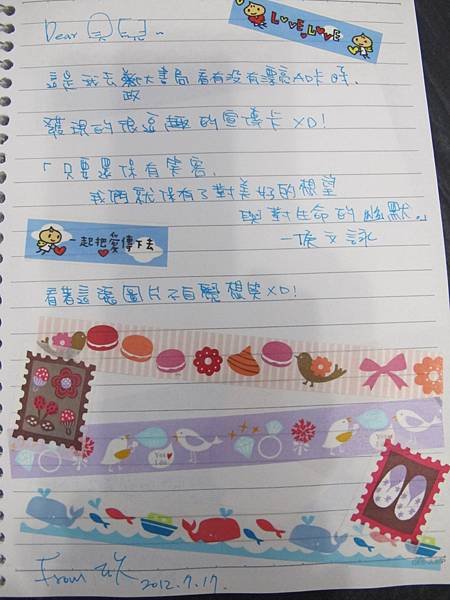 LOVE LOVE
Dear
這是我去政大書局看有没有漂亮AD卡時,
發現的很逗趣的宣傳卡XD!
「只要還保有笑容,
我們就保有了對美好的想望
與對生命的幽默。」
—侯文詠
一起把愛傳下去
看著這張圖片不自覺想笑XD!
Yes! I do
Yes! I do
From 2012.7.17.